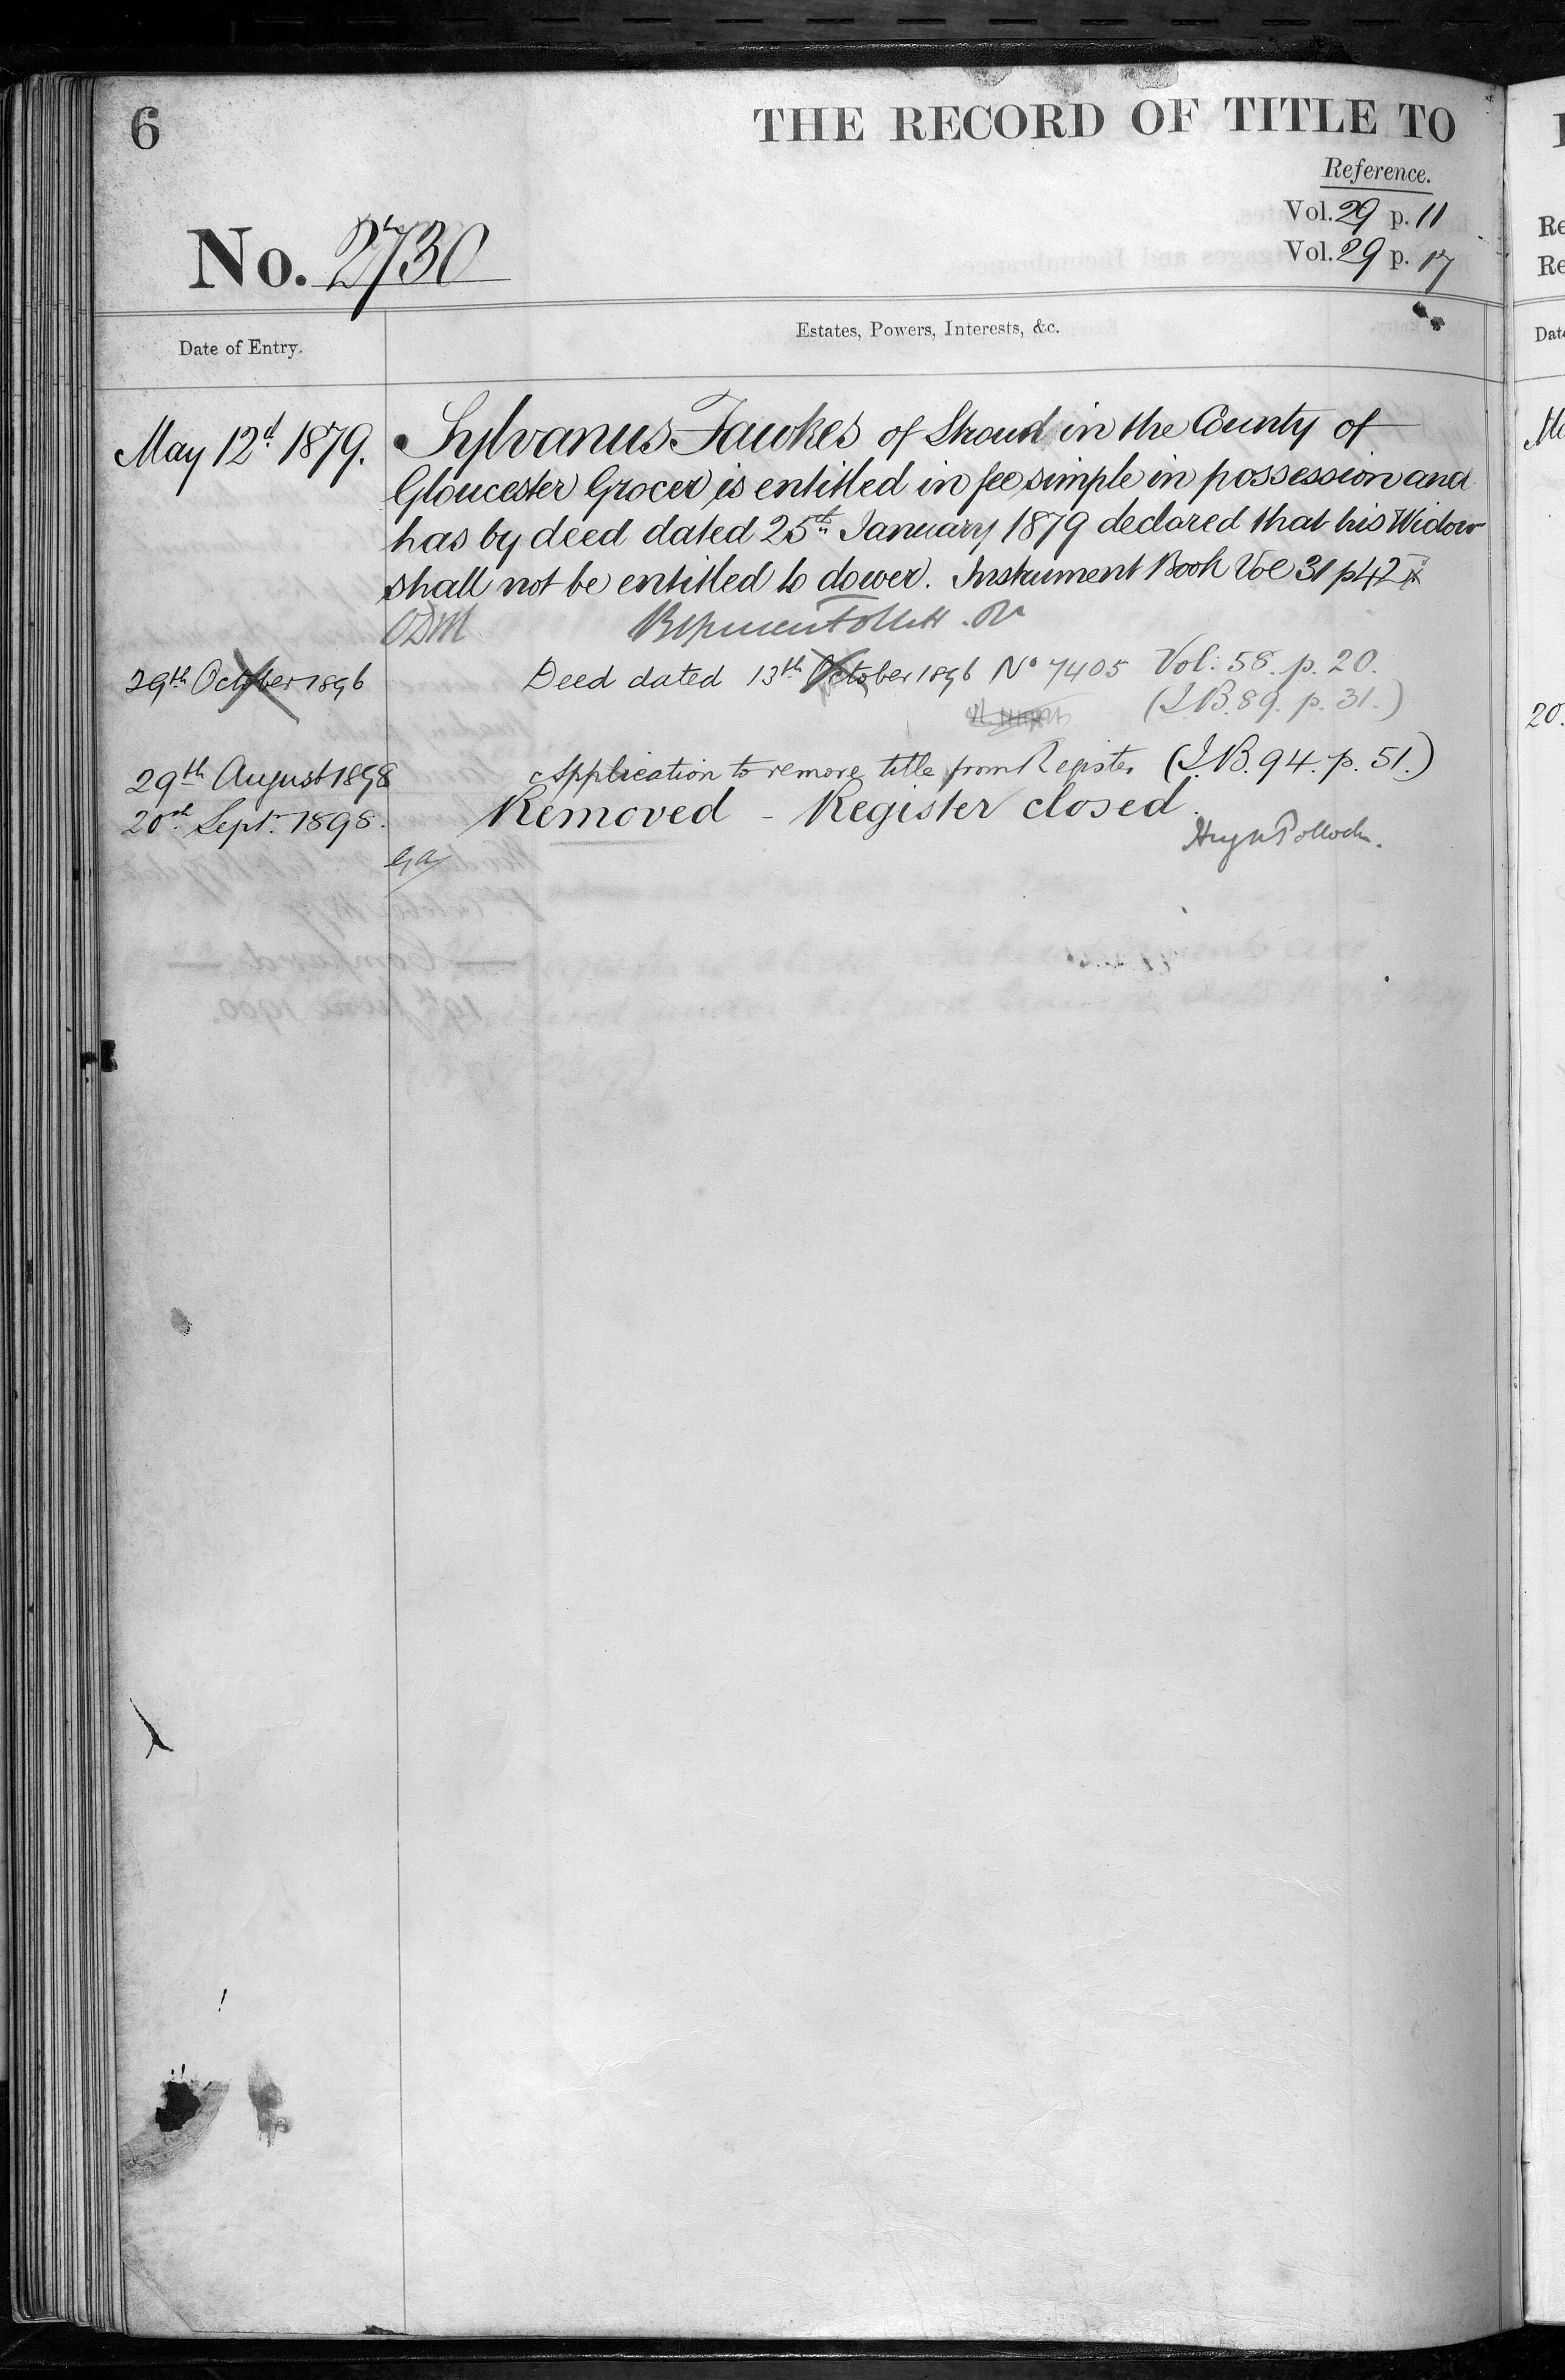 6
THE RECORD OF TITLE TO
Reference.
Vol. 29 p. 11
No. 2730
Vol. 29 p. 17
Date of Entry.
Estates, Powers, Interests, &c.
May 12d. 1879.
Sylvanus Fawkes of Stroud in the County of
Gloucester Grocer is entitled in fee simple in possession and
has by deed dated 25th January 1879 declared that his Widow
shall not be entitled to dower. Instrument Book Vol 31 p 42
29th October 1896
Deed dated 13th October 1896 No 7405 Vol: 58. p. 20.
(I.B. 89. p. 31.)
29th August 1898
Application to remove title from Register (I.B. 94. p. 51.)
20th Sept. 1898.
Removed - Register closed.
Hugh Pollock.
Re
Re
Date
20.